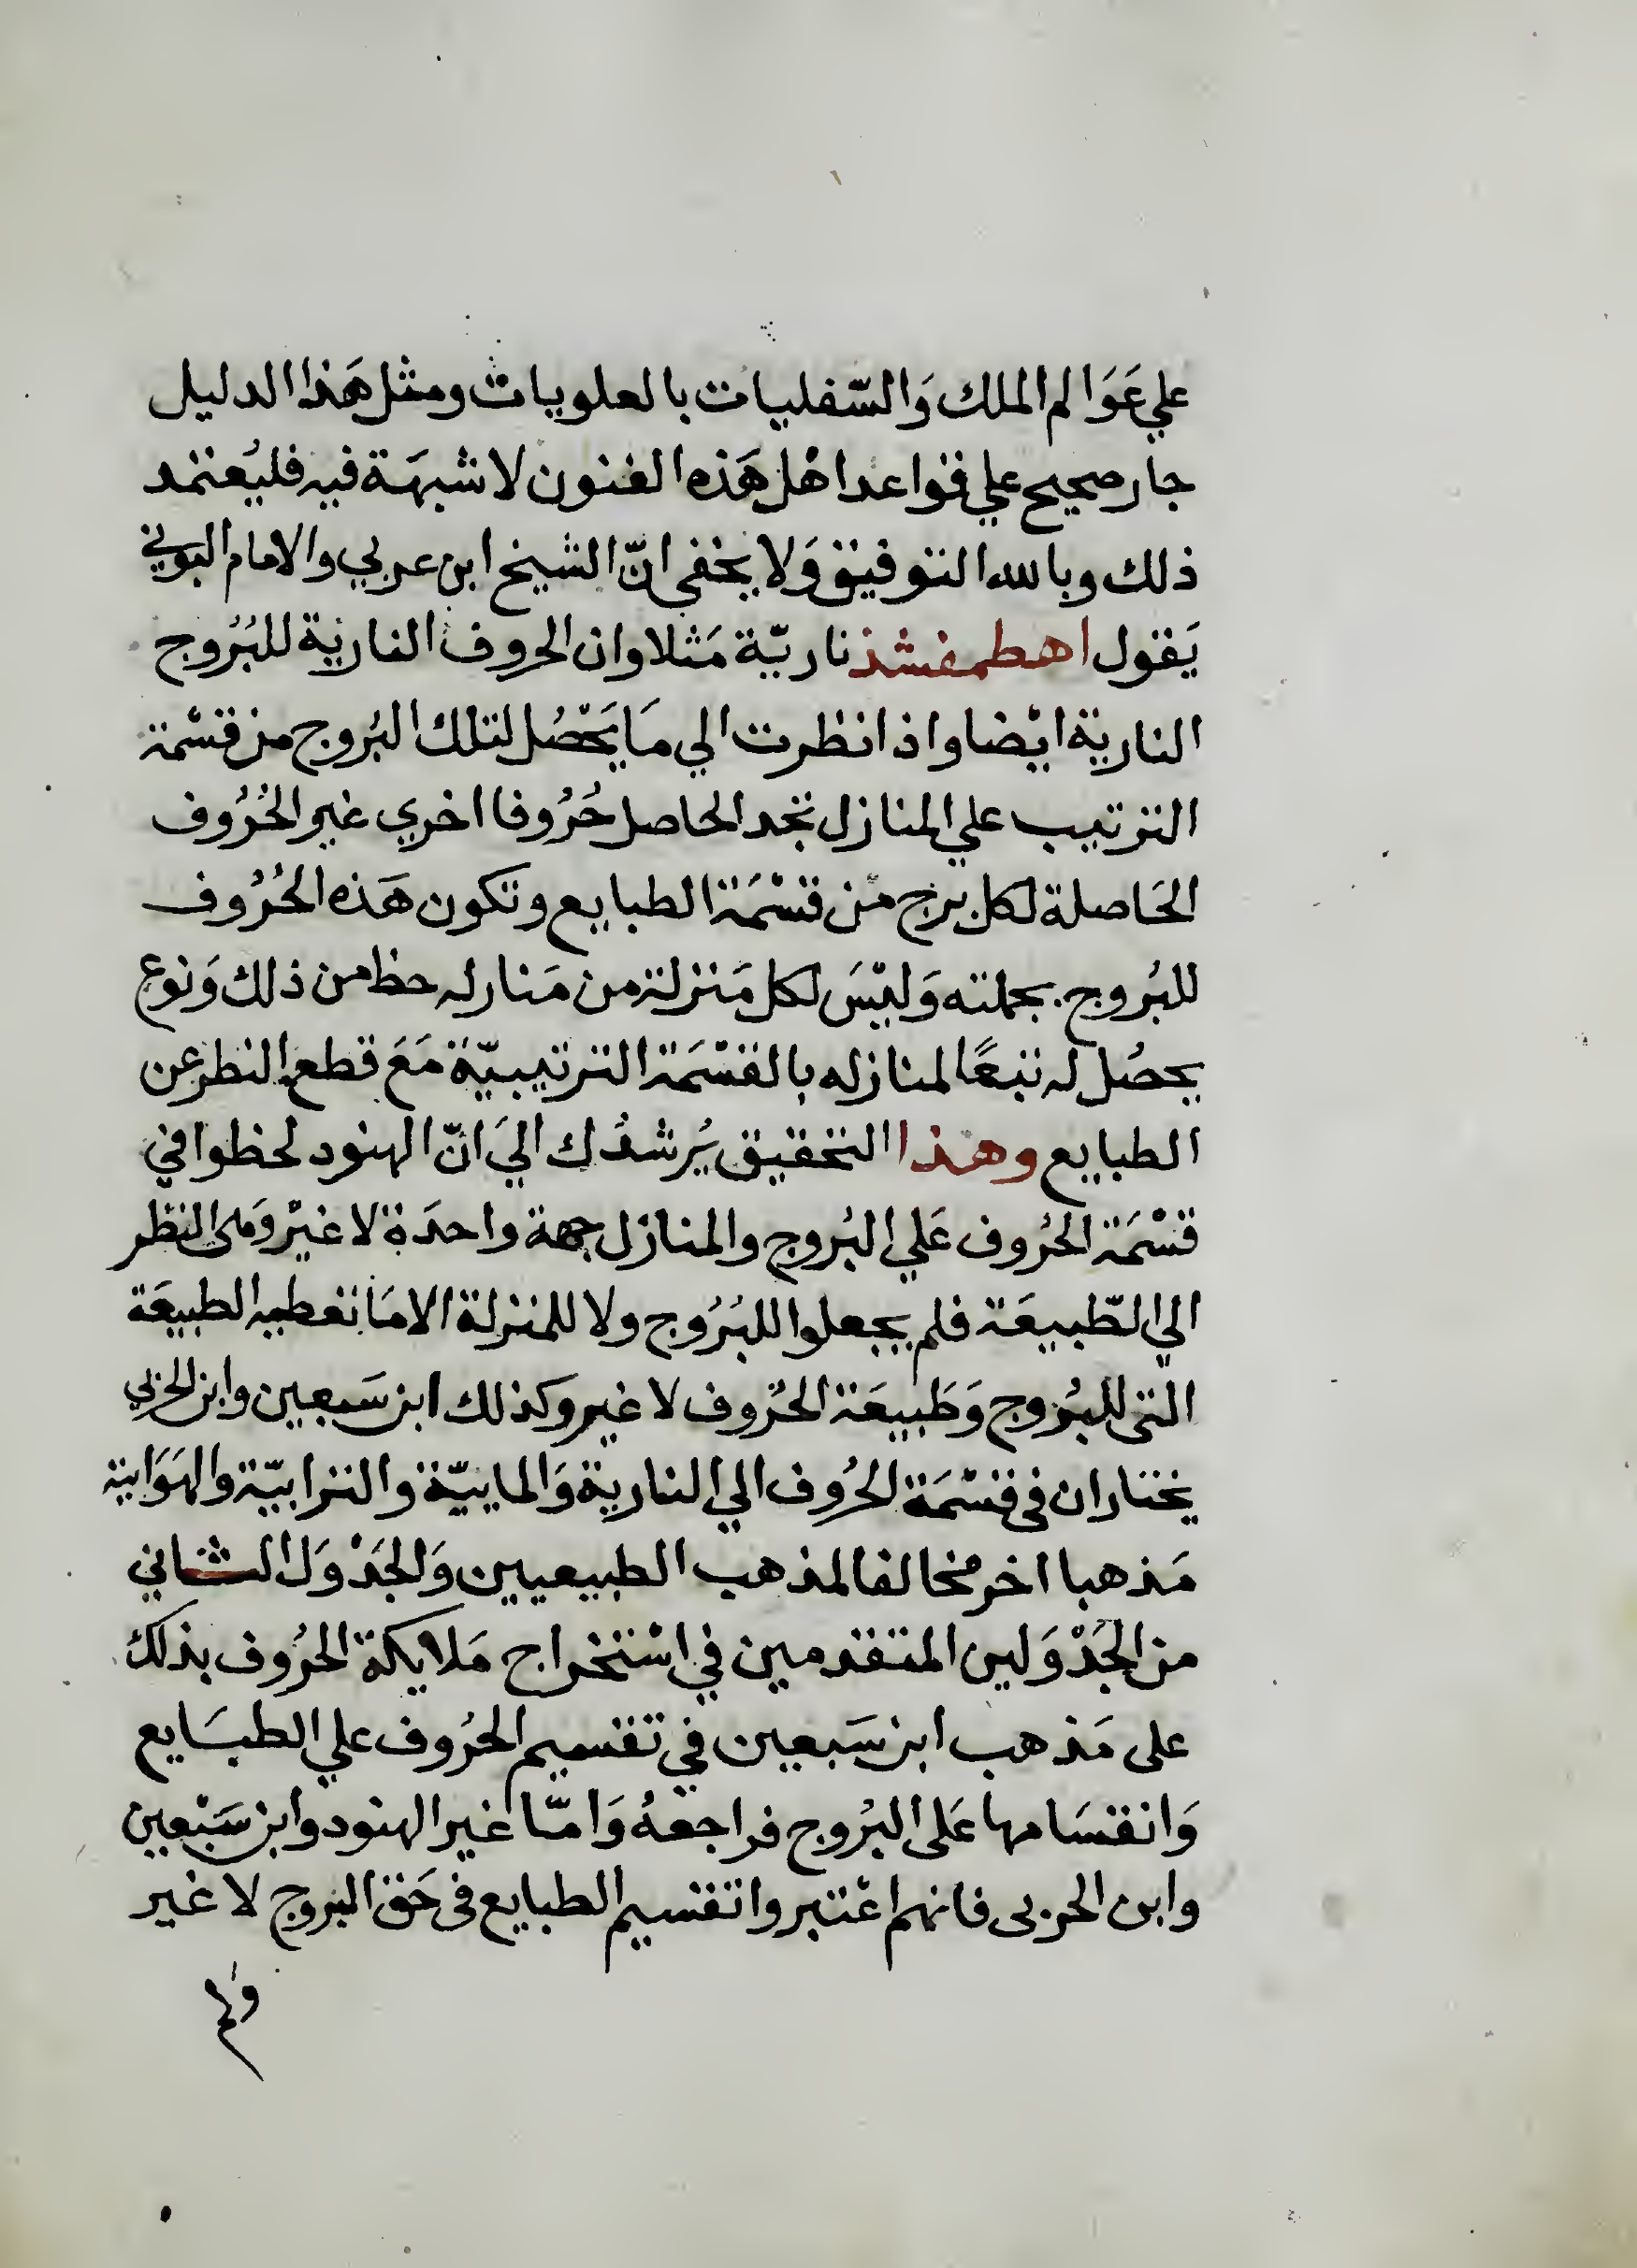 علي عَوَالم الملك وَالسّفليات بالعلويات ومثل هَذا الدليل
جار صحيح علي قواعد اهْل هَذه الفنون لا شبهَة فيه فليُعتمد
ذلك وبالله التوفيق وَلا يخفي انّ الشيخ ابن عربي والامام البوني
يَقول اهطمفشذ ناريّة مَثلا وان الحروف النارية للبُرُوج
النارية ايْضا واذا نظرت الي مَا يَحْصُل لتلك البُروج من قسْمة
الترتيب علي المنازل تجد الحاصل حُرُوفا اخري غير الحُرُوف
الحَاصلة لكل برج من قسْمَة الطبايع وتكون هَذه الحُرُوف
للبُروج بجملته وَليْسَ لكل مَنزلة من مَنازله حظ من ذلك وَنوع
يحصُل له تبعًا لمنازله بالقسْمَة الترتيبيّة مَعَ قطع النظر عن
الطبايع وهذا التحقيق يُرشدُك اليَ انّ الهنود لحظوا في
قسْمَة الحُروف عَلي البُروج والمنازل جهة واحدَة لا غيْر وَهى النظر
الي الطّبيعَة فلم يجعلوا للبُرُوج ولا للمنزلة الا مَا تعطيه الطبيعَة
التى للبُرُوج وَطَبيعَة الحُروف لا غير وكذلك ابن سَبعين وابن الحربي
يختاران فى قسْمَة الحُروف الي النارية وَالماييّة والترابيّة والهَوَاية
مَذهبا اخر مخالفا لمذهب الطبيعيين وَالجَدْوَل الثاني
من الجَدْوَلين المتقدمين في اسْتخراج مَلايكة الحُروف بذلك
على مَذهب ابن سَبعين في تقسيم الحُروف علي الطبَايع
وَانقسَامها عَلى البُروج فراجعهُ وَامّا غير الهنود وابن سَبْعين
وابن الحربى فانهم اعْتبروا تقسيم الطبايع فى حَق البروج لا غير
وَلم